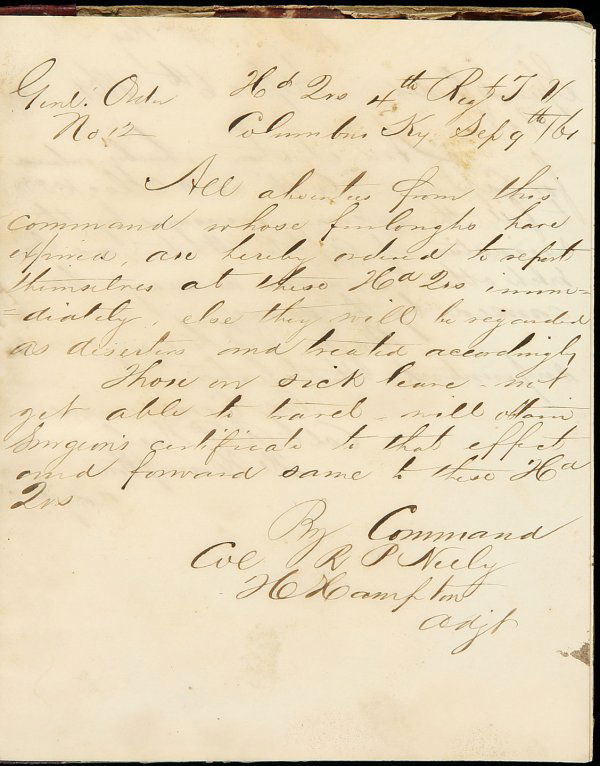 Genl. Order Hd Qrs 4th Regt T V
No 12 Columbus Ky. Sep 9th /61
All absentees from this
command whose furloughs have
expired, are hereby ordered to report
themselves at these Hd Qrs imme=
=diately, else they will be regarded
as deserters and treated accordingly
Those on sick leave - not
yet able to travel - will obtain
Surgeon's certificate to that effect
and forward same to these Hd
Qrs
By Command
Col R P Neely
H Hampton
Adjt